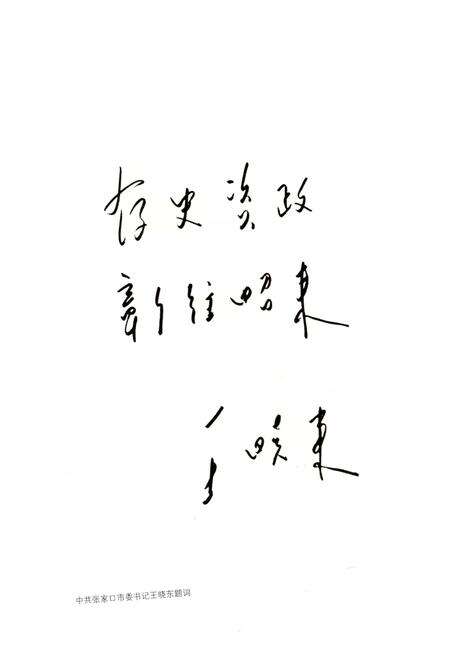 存史资政
新往昭来
王晓东
中共张家口市委书记王晓东题词